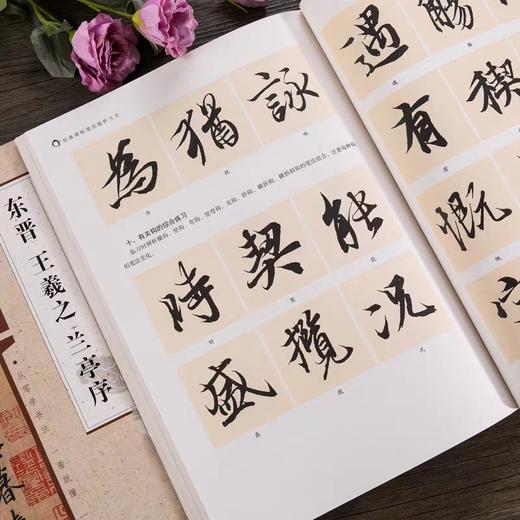 经典碑帖笔法临析大全
為猶詠
为 犹 咏
十、有关钩的综合练习
临习时辨析横钩、竖钩、弯钩、竖弯钩、戈钩、卧钩、横折钩、横折斜钩的笔法组合,注意每种钩
的笔法变化。
時契能
时 契 能
盛攬况
盛 揽 况
遇觴
遇 觞
有稧
有
慨
慨
东晋 王羲之 兰亭序
从零学书法 一看就懂
春